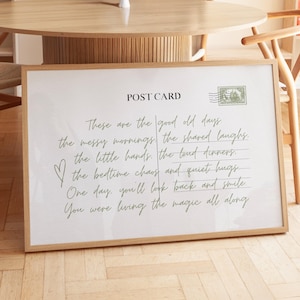 POST CARD
These are the good old days
the messy mornings, the shared laughs,
the little hands, the loud dinners,
the bedtime chaos and quiet hugs.
One day, you'll look back and smile
You were living the magic all along